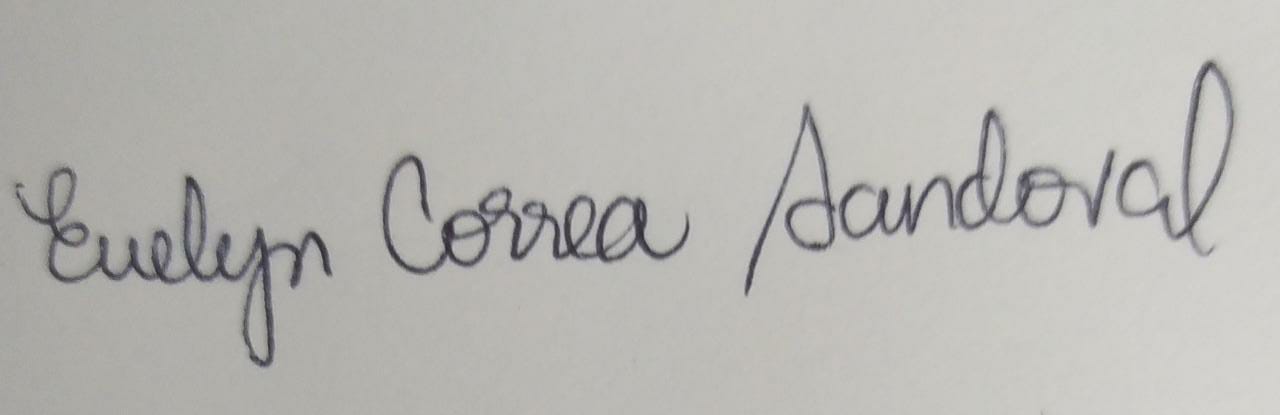 Evelyn Correa Sandoval